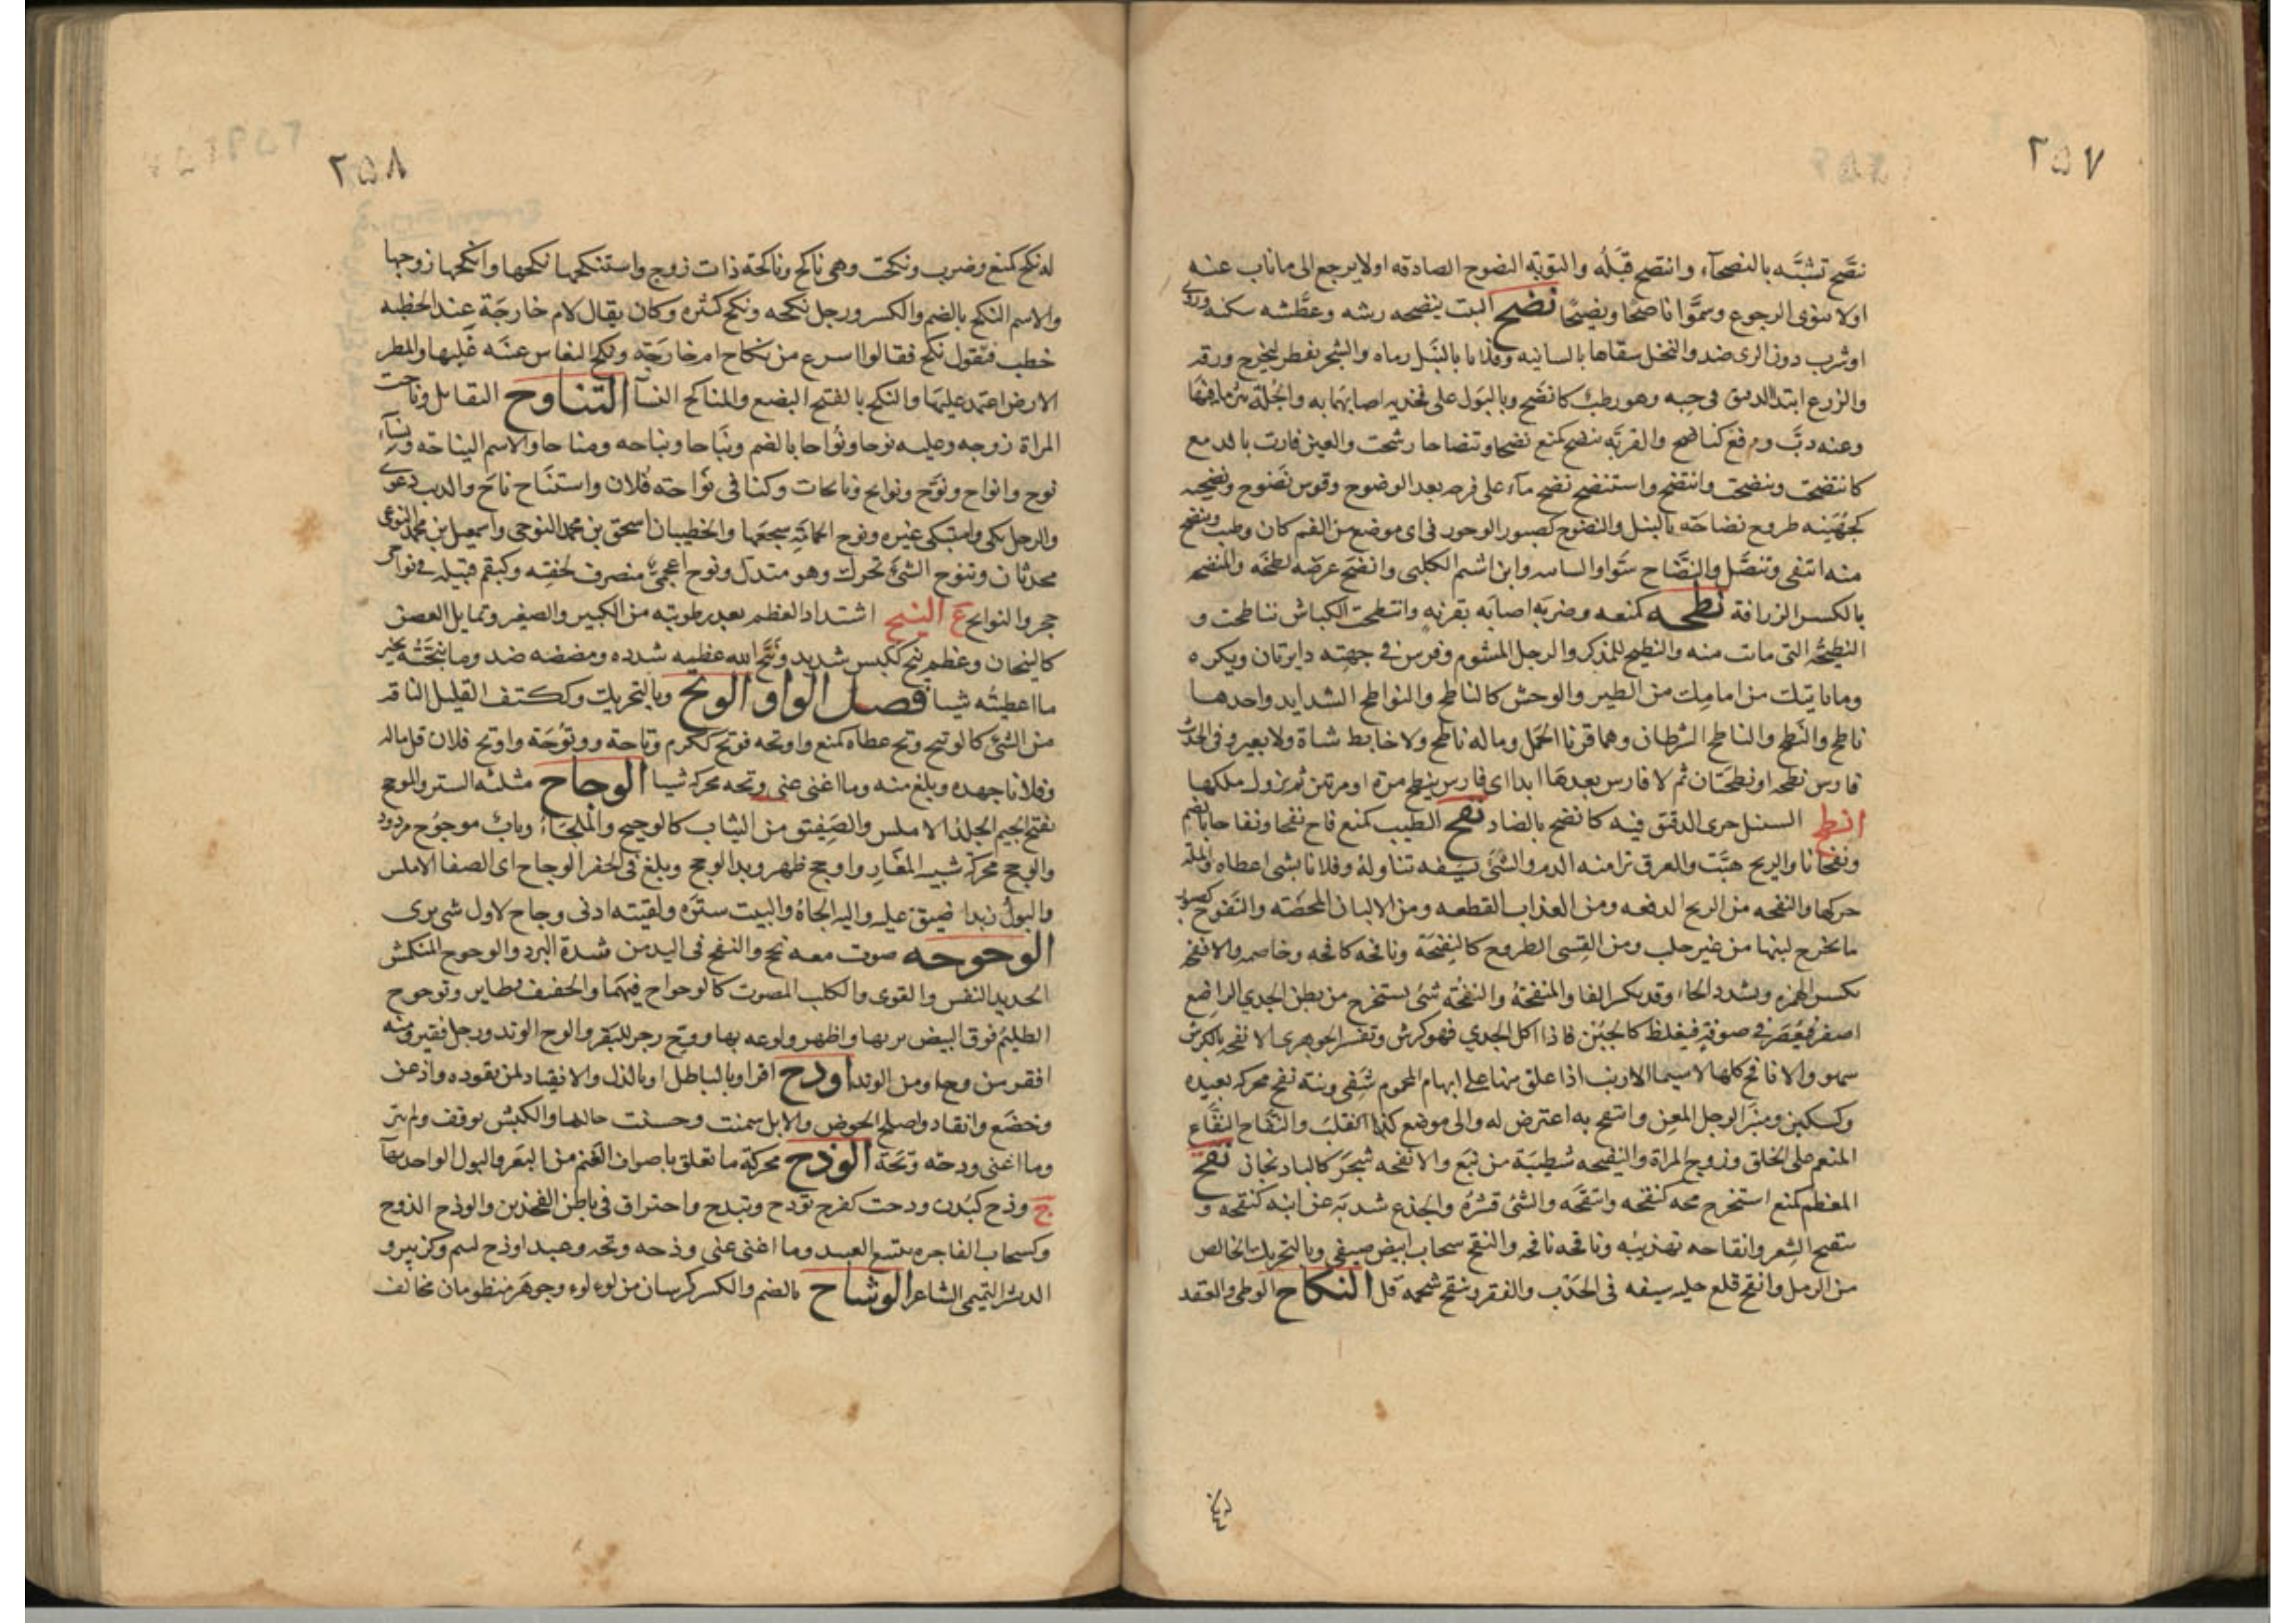 ٢٥٧
نصّح تشبّه بالنصحآء وانتصح قبله والتوبة النصوح الصادقه اولا يرجع الى ما تاب عنه
اولا ينوى الرجوع وسمّوا ناصحا ونصيحًا نضح البت ينضحه رشه وعطشه سكنه وروى
اوشرب دون الرى ضد والنخل سقاها بالسانيه وفلانا بالنبل رماه والشجر تفطر ليخرج ورقه
والزرع ابتدا الدقيق فى حبه وهو رطب كانضح وبالبول على فخذيه اصابهما به والجلة نثر ما فيها
وعنه ذبّ ودفع كناضح والقربة تنضح كمنع نضحا وتنضاحا رشحت والعين فارت بالدمع
كانتضحت وتنضحت وانتضح واستنضح نضح مآء على فرجه بعد الوضوح وقوس نضوح ونضحيه
كجهنيه طروح نضاحة بالنبل والنضوح كصبور الوجور فى اى موضع من الفم كان وطيب وتنضح
منه انتفى وتنصّل والنضّاح سوّاق السانيه وابن اشيم الكلبى وانضح عرضه لطخه والمنضحه
بالكسر الزراقة نطحه كمنعه وضربه اصابه بقرنه وانتطحت الكباش تناطحت و
النطيحة التى ماتت منه والنطيح للمذكر والرجل المشوم وفرس فى جبهته دايرتان ويكره
وما ياتيك من امامك من الطير والوحش كالناطح والنواطح الشدايد واحدها
ناطح والنطح والناطح الشرطان وهما قرنا الحمل وماله ناطح ولا خابط شاة ولا بعير وفى الحديث
فارس نطحه او نطحتان ثم لا فارس بعدها ابدا اى فارس ينطح مرة او مرتين ثم يزول ملكها
انظح السنبل جرى الدقيق فيه كانضح بالضاد نفح الطيب كمنع فاح نفحا ونفاحا بالضم
ونفحانا والريح هبّت والعرق نزا منه الدم والشئ بسيفه تناوله وفلانا بشى اعطاه واللمّة
حركها والنفحه من الريح الدفعه ومن العذاب القطعه ومن الالبان المحضه والنفوح كصبور
ما تخرج لبنها من غير حلب ومن القسى الطروح كالنفيحة ونافحه كافحه وخاصمه والانفحه
بكسر الهمزه وبشدد الحاء وقد يكسر الفا والمنفحة والنفحة شئ يستخرج من بطن الجدي الراضع
اصفر فيعصر فى صوفه فيغلظ كالجبن فاذا اكل الجدي فهو كرش وتفسير الجوهرى الانفحه بالكرش
سهو والانافح كلها لاسيما الارنب اذا علق منها على ابهام المحموم شفى ونية نفح محركه بعيده
وكسكين ومنبر الرجل المعن وانتفح به اعترض له والى موضع كذا انقلب والنفّاح النفّاع
المنعم على الخلق وزوج المراة والنفيحه شطيبة من نبع والانفحه شجر كالباذنجان نقح
العظم كمنع استخرج مخه كنقحه وانتقحه والشئ قشره والجذع شذبه عن ابنه كنقحه و
تنقيح الشعر وانقاحه تهذيبه وناقحه نافحه والنقح سحاب ابيض صيفى وبالتحريك الخالص
من الرمل وانقح قلع حليه سيفه فى الجدب والفقر وتنقح شحمه قل النكاح الوطى والعقد
٢٥٨
له نكح كمنع وضرب ونكحت وهى ناكح وناكحة ذات زوج واستنكحها نكحها وانكحها زوجها
والاسم النكح بالضم والكسر ورجل نكحه ونكح كثره وكان يقال لام خارجة عند الخطبه
خطب فتقول نكح فقالوا اسرع من نكاح ام خارجة ونكح النعاس عينه غلبها والمطر
الارض اعتمد عليها والنكح بالفتح البضع والمناكح النسآ التناوح التقابل وناحت
المراة زوجه وعليه نوحا ونواحا بالضم ونياحا ونياحه ومناحا والاسم النياحه ونسآء
نوح وانواح ونوّح ونوايح ونايحات وكنا فى نواحة فلان واستناح ناح والذيب عوى
والرجل بكى واستبكى غيره ونوح الحمامة سجعها والخطيبان اسحق بن محمد النوحى واسمعيل بن محمد النوحى
محدثان وتنوح الشئ تحرك وهو متدل ونوح اعجمى منصرف لخفته وكبقم قبيله فى نواحى
حجر والنوايح ع النيح اشتداد العظم بعد رطوبته من الكبير والصغير وتمايل الغصن
كالنيحان وعظم نيح ككيس شديد ونيّح الله عظمه شدده ورضضه ضد وما نيحته بخير
ما اعطيته شيا فصل الواو الوتح وبالتحريك وككتف القليل التافه
من الشئ كالوتيح وتح عطاه كمنع واوتحه فوتح ككرم وتاحة ووتوحة واوتح فلان قل ماله
وفلانا جهده وبلغ منه وما اغنى عنى وتحه محركه شيا الوجاح مثلثه الستر والموجح
بفتح الجيم الجلد الاملس والصفيق من الثياب كالوجيح والملجأ وباب موجوح مردود
والوجح محركه شبيه الغار واوجح ظهر وبدا الوجح وبلغ فى الحفر الوجاح اى الصفا الاملس
والبول زيدا ضيق عليه واليه الجاه والبيت ستره ولقيته ادنى وجاح لاول شى يرى
الوحوحه صوت معه نحح والنفخ فى اليد من شدة البرد والوحوح المنكمش
الحديد النفس والقوى والكلب المصوت كالوحواح فيهما والخفيف وطاير وتوحوح
الظليم فوق البيض رتمها واظهر ولوعه بها ووح زجر للبقر والوح الوتد ورجل فقير ومنه
افقر من وح او من الوتد اودح اقر او بالباطل او بالذل والانقياد لمن يقوده واذعن
وخضع وانقاد واصلح الحوض والابل سمنت وحسنت حالها والكبش توقف ولم ينز
وما اغنى ودحه وتحة الوذح محركة ما تعلق باصواف الغنم من البعر والبول الواحده بهآ
ج وذح كبدن وذحت كفرح توذح وتيذح واحتراق فى باطن الفخذين والوذح الذوح
وكسحاب الفاجره تتبع العبيد وما اغنى عنى وذحه وتحه وعبد اوذح لئيم وكزبير و
الد بشر التميمى الشاعر الوشاح بالضم والكسر كرسان من لولو وجوهر منظومان مخالف